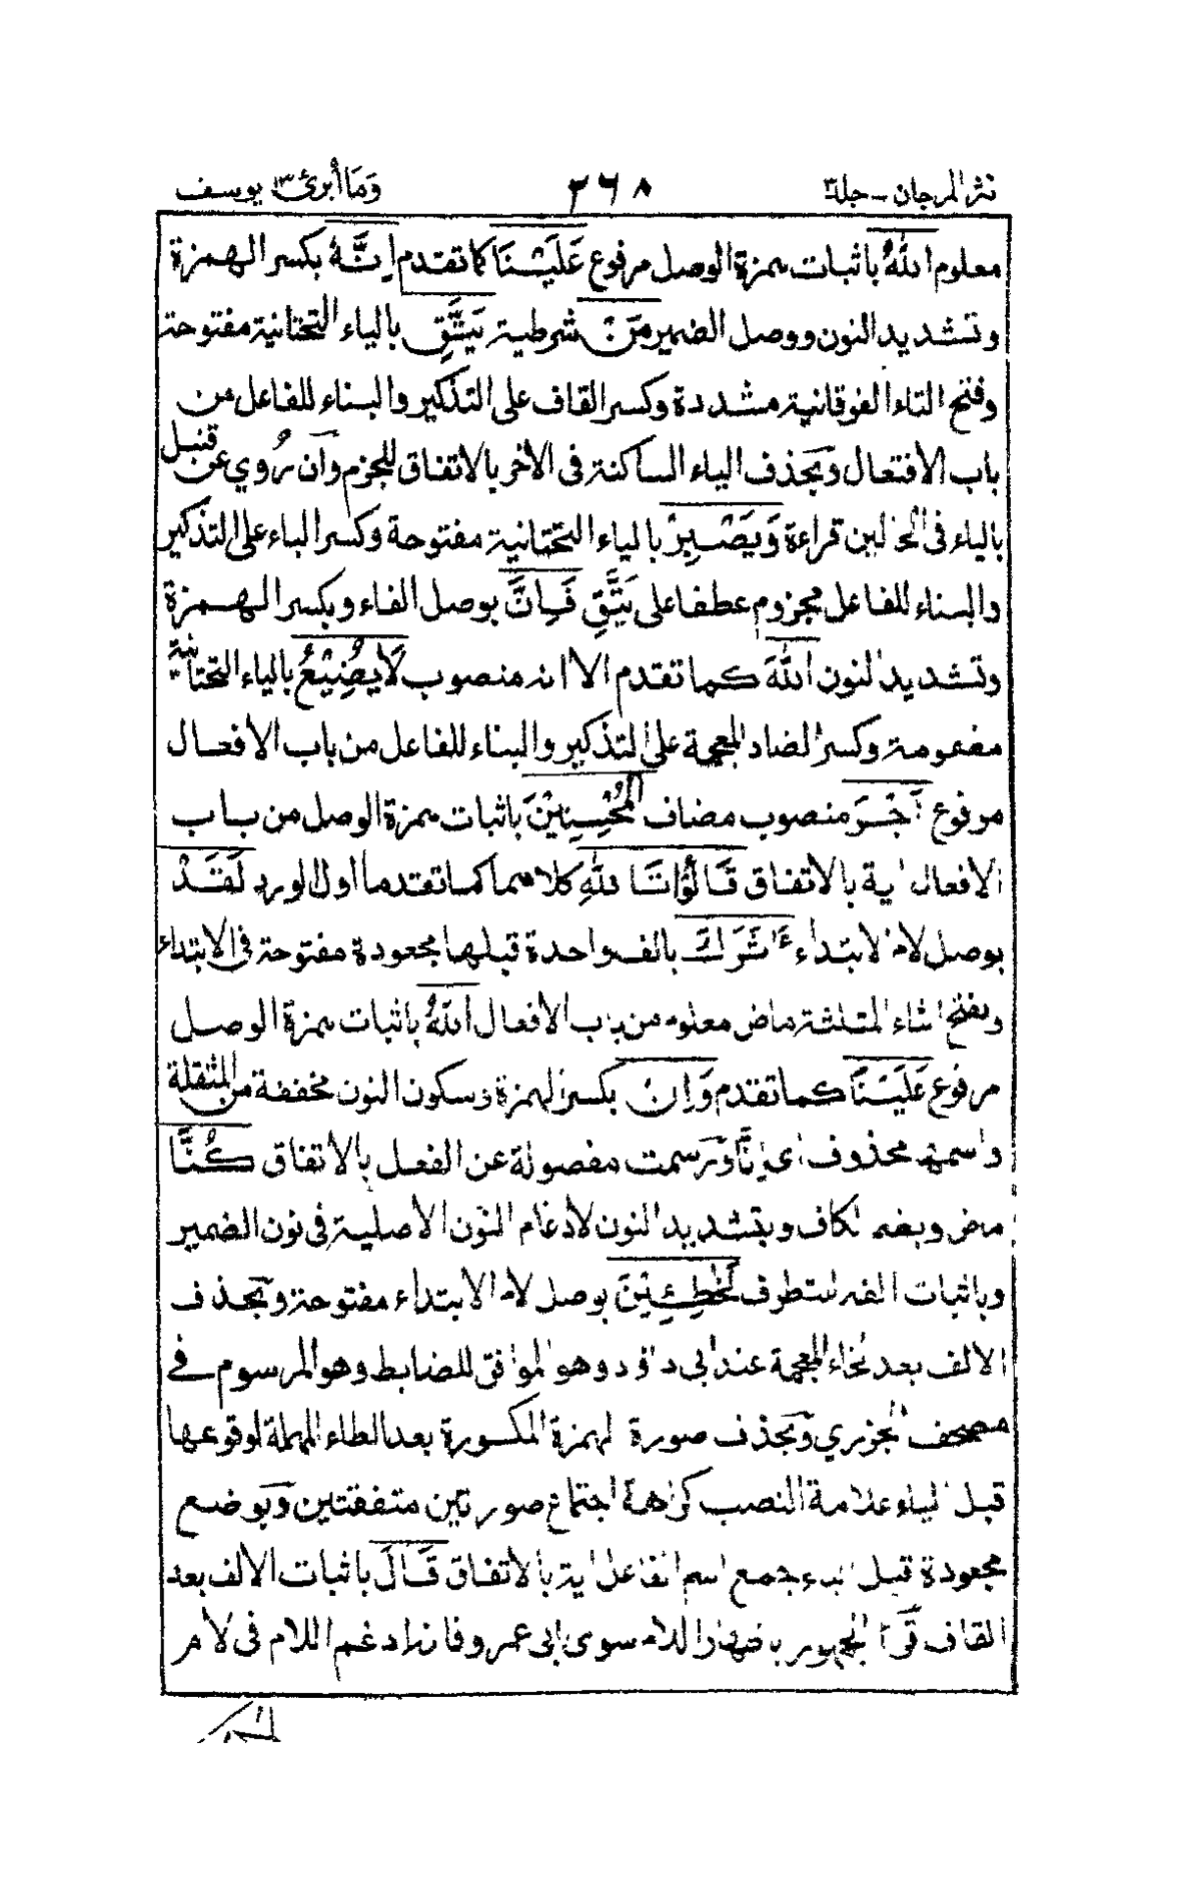 نثر المرجان - جلد ٣ ٣٦٨ وَمَا أبرئ ١٣ يوسف
معلوم اللهُ باثبات همزة الوصل مرفوع عَلَيْنَا كما تقدم اِنَّهُ بكسر الهمزة
وتشديد النون ووصل الضمير مَنْ شرطية يَتَّقِ بالياء التحتانية مفتوحة
وفتح التاء الفوقانية مشددة وكسر القاف على التذكير والبناء للفاعل من
باب الافتعال وبحذف الياء الساكنة فى الأخر بالاتفاق للجزم وان رُوي عن قنبل
بالياء فى الحالين قراءة وَيَصْبِرْ بالياء التحتانية مفتوحة وكسر الباء على التذكير
والبناء للفاعل مجزوم عطفا على يَتَّقِ فَاِنَّ بوصل الفاء وبكسر الهمزة
وتشديد النون اللهَ كما تقدم الا انه منصوب لَا يُضِيْعُ بالياء التحتانية
مضمومة وكسر الضاد المعجمة على التذكير والبناء للفاعل من باب الافعال
مرفوع اَجْرَ منصوب مضاف الْمُحْسِنِيْنَ باثبات همزة الوصل من باب
الافعال اية بالاتفاق قَالُوْا تَا للهِ كلاهما كما تقدما اول الورد لَقَدْ
بوصل لام الابتداء ءَاثَرَكَ بالف واحدة قبلها مجعودة مفتوحة فى الابتداء
وبفتح الثاء المثلثة ماض معلوم من باب الافعال اللهُ باثبات همزة الوصل
مرفوع عَلَيْنَا كما تقدم وَاِنْ بكسر الهمزة وسكون النون مخففة من المثقلة
واسمه محذوف اى اِنَّا ورسمت مفصولة عن الفعل بالاتفاق كُنَّا
ماض وبضم الكاف وبتشديد النون لادغام النون الاصلية فى نون الضمير
وباثبات الفه للتطرف لَخٰطِـِٔيْنَ بوصل لام الابتداء مفتوحة وبحذف
الالف بعد الخاء المعجمة عند ابى داؤد وهو الموافق للضابط وهو المرسوم فے
مصحف الجزري وبحذف صورة الهمزة المكسورة بعد الطاء المهملة لوقوعها
قبل الياء علامة النصب كراهة اجتماع صورتين متفقتين وبوضع
مجعودة قبل الياء جمع اسم الفاعل اية بالاتفاق قَالَ باثبات الالف بعد
القاف قرأ الجمهور باظهار اللام سوى ابى عمرو فانه ادغم اللام فى لام